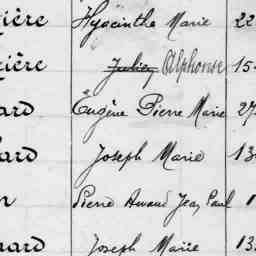 ière Hyacinthe Marie 22
ière Julien Alphonse 15
ard Eugène Pierre Marie 27
ard Joseph Marie 13
Pierre Amand Jean Paul 1
ard Joseph Marie 13